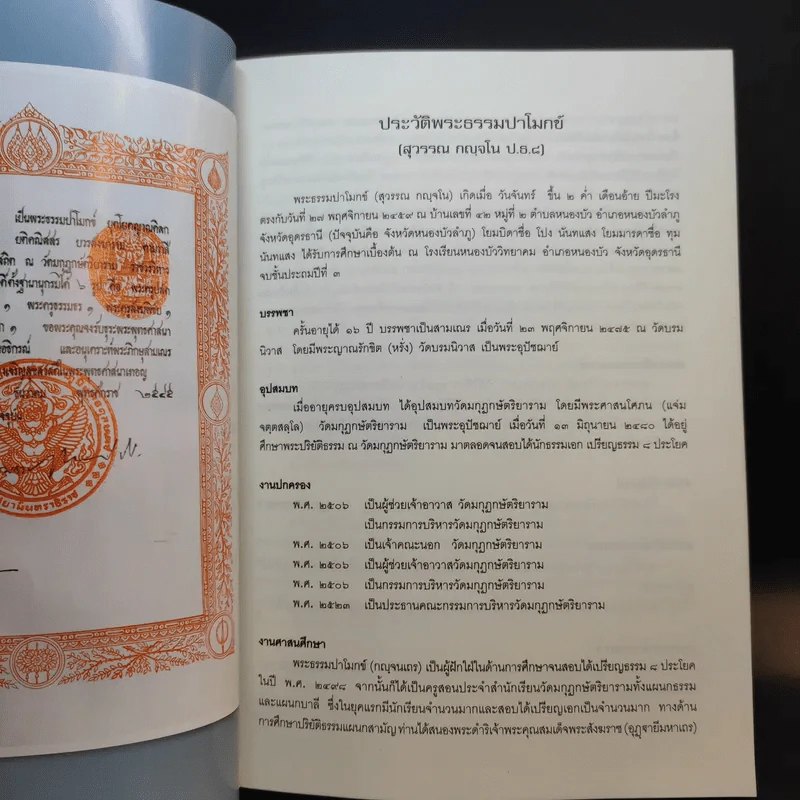 เป็นพระธรรมปาโมกข์
วัดมกุฏกษัตริยาราม
๑ พระครูธรรมธร ๑
ขอพระคุณจงรับธุระพระพุทธศาสนา
พุทธศักราช ๒๕๔๕
ประวัติพระธรรมปาโมกข์
(สุวรรณ กญฺจโน ป.ธ.๘)
พระธรรมปาโมกข์ (สุวรรณ กญฺจโน) เกิดเมื่อ วันจันทร์ ขึ้น ๒ ค่ำ เดือนอ้าย ปีมะโรง
ตรงกับวันที่ ๒๗ พฤศจิกายน ๒๔๕๙ ณ บ้านเลขที่ ๔๒ หมู่ที่ ๒ ตำบลหนองบัว อำเภอหนองบัวลำภู
จังหวัดอุดรธานี (ปัจจุบันคือ จังหวัดหนองบัวลำภู) โยมบิดาชื่อ โปง นันทแสง โยมมารดาชื่อ ทุม
นันทแสง ได้รับการศึกษาเบื้องต้น ณ โรงเรียนหนองบัววิทยาคม อำเภอหนองบัว จังหวัดอุดรธานี
จบชั้นประถมปีที่ ๓
บรรพชา
ครั้นอายุได้ ๑๖ ปี บรรพชาเป็นสามเณร เมื่อวันที่ ๒๓ พฤศจิกายน ๒๔๗๕ ณ วัดบรม
นิวาส โดยมีพระญาณรักขิต (หรั่ง) วัดบรมนิวาส เป็นพระอุปัชฌาย์
อุปสมบท
เมื่ออายุครบอุปสมบท ได้อุปสมบทวัดมกุฏกษัตริยาราม โดยมีพระศาสนโศภน (แจ่ม
จตฺตสลฺโล) วัดมกุฏกษัตริยาราม เป็นพระอุปัชฌาย์ เมื่อวันที่ ๑๓ มิถุนายน ๒๔๘๐ ได้อยู่
ศึกษาพระปริยัติธรรม ณ วัดมกุฏกษัตริยาราม มาตลอดจนสอบได้นักธรรมเอก เปรียญธรรม ๘ ประโยค
งานปกครอง
พ.ศ. ๒๕๐๖ เป็นผู้ช่วยเจ้าอาวาส วัดมกุฏกษัตริยาราม
เป็นกรรมการบริหารวัดมกุฏกษัตริยาราม
พ.ศ. ๒๕๐๖ เป็นเจ้าคณะนอก วัดมกุฏกษัตริยาราม
พ.ศ. ๒๕๐๖ เป็นผู้ช่วยเจ้าอาวาสวัดมกุฏกษัตริยาราม
พ.ศ. ๒๕๐๖ เป็นกรรมการบริหารวัดมกุฏกษัตริยาราม
พ.ศ. ๒๕๒๓ เป็นประธานคณะกรรมการบริหารวัดมกุฏกษัตริยาราม
งานศาสนศึกษา
พระธรรมปาโมกข์ (กญฺจนเถร) เป็นผู้ฝักใฝ่ในด้านการศึกษาจนสอบได้เปรียญธรรม ๘ ประโยค
ในปี พ.ศ. ๒๔๙๘ จากนั้นก็ได้เป็นครูสอนประจำสำนักเรียนวัดมกุฏกษัตริยารามทั้งแผนกธรรม
และแผนกบาลี ซึ่งในยุคแรกมีนักเรียนจำนวนมากและสอบได้เปรียญเอกเป็นจำนวนมาก ทางด้าน
การศึกษาปริยัติธรรมแผนกสามัญ ท่านได้สนองพระดำริเจ้าพระคุณสมเด็จพระสังฆราช (อุฏฺฐายีมหาเถร)